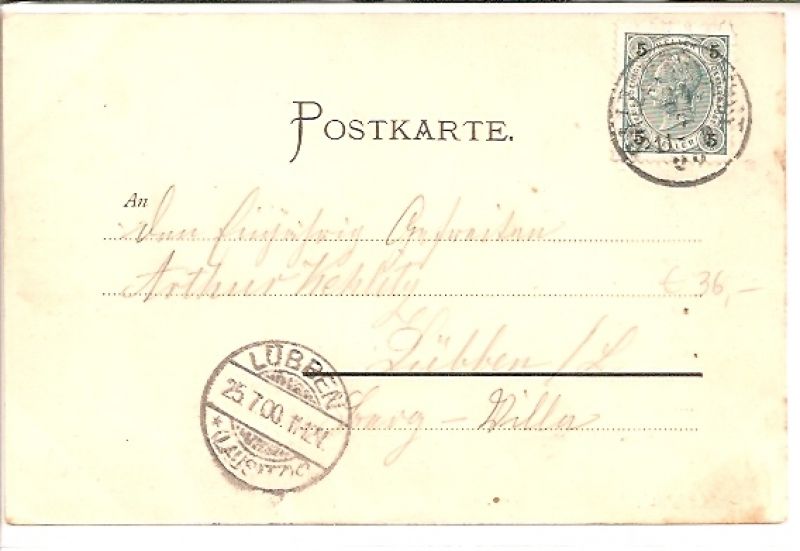 5 5
5 5
POSTKARTE.
An
Den Einjährig Gefreiten
Arthur
€ 36,-
Lübben / L
LÜBBEN
25.7.00. 11-12V.
* (LAUSITZ)
Berg - Villa